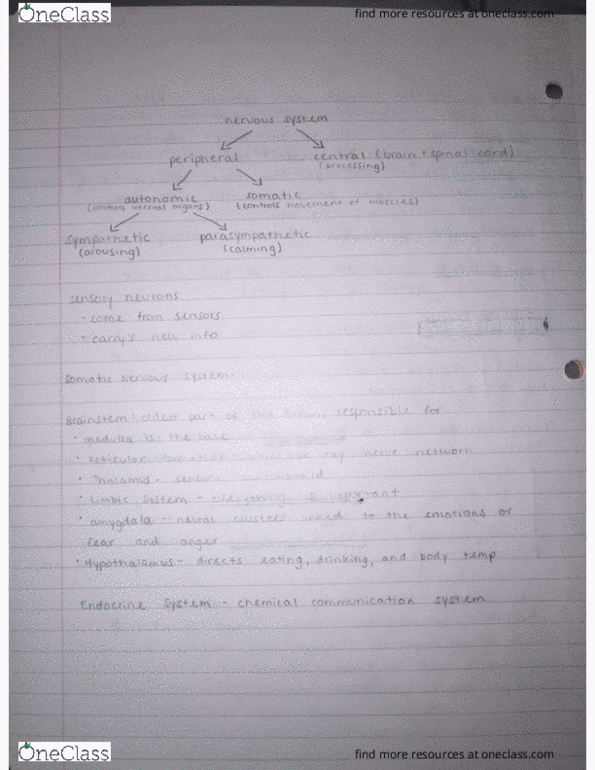 OneClass
find more resources at oneclass.com
nervous system
peripheral central (brain + spinal cord)
(processing)
autonomic somatic
(controls internal organs) (controls movement of muscles)
sympathetic parasympathetic
(arousing) (calming)
sensory neurons
- come from sensors
- carry's new info
Somatic Nervous System-
Brainstem: oldest part of the brain, responsible for
· medulla is the base
· Reticular formation nerve network
· Thalamus - sensory
· Limbic System - everything is important
· amygdala - neural clusters linked to the emotions of
fear and anger
· Hypothalamus - directs eating, drinking, and body temp
Endocrine System - chemical communication system
OneClass
find more resources at oneclass.com